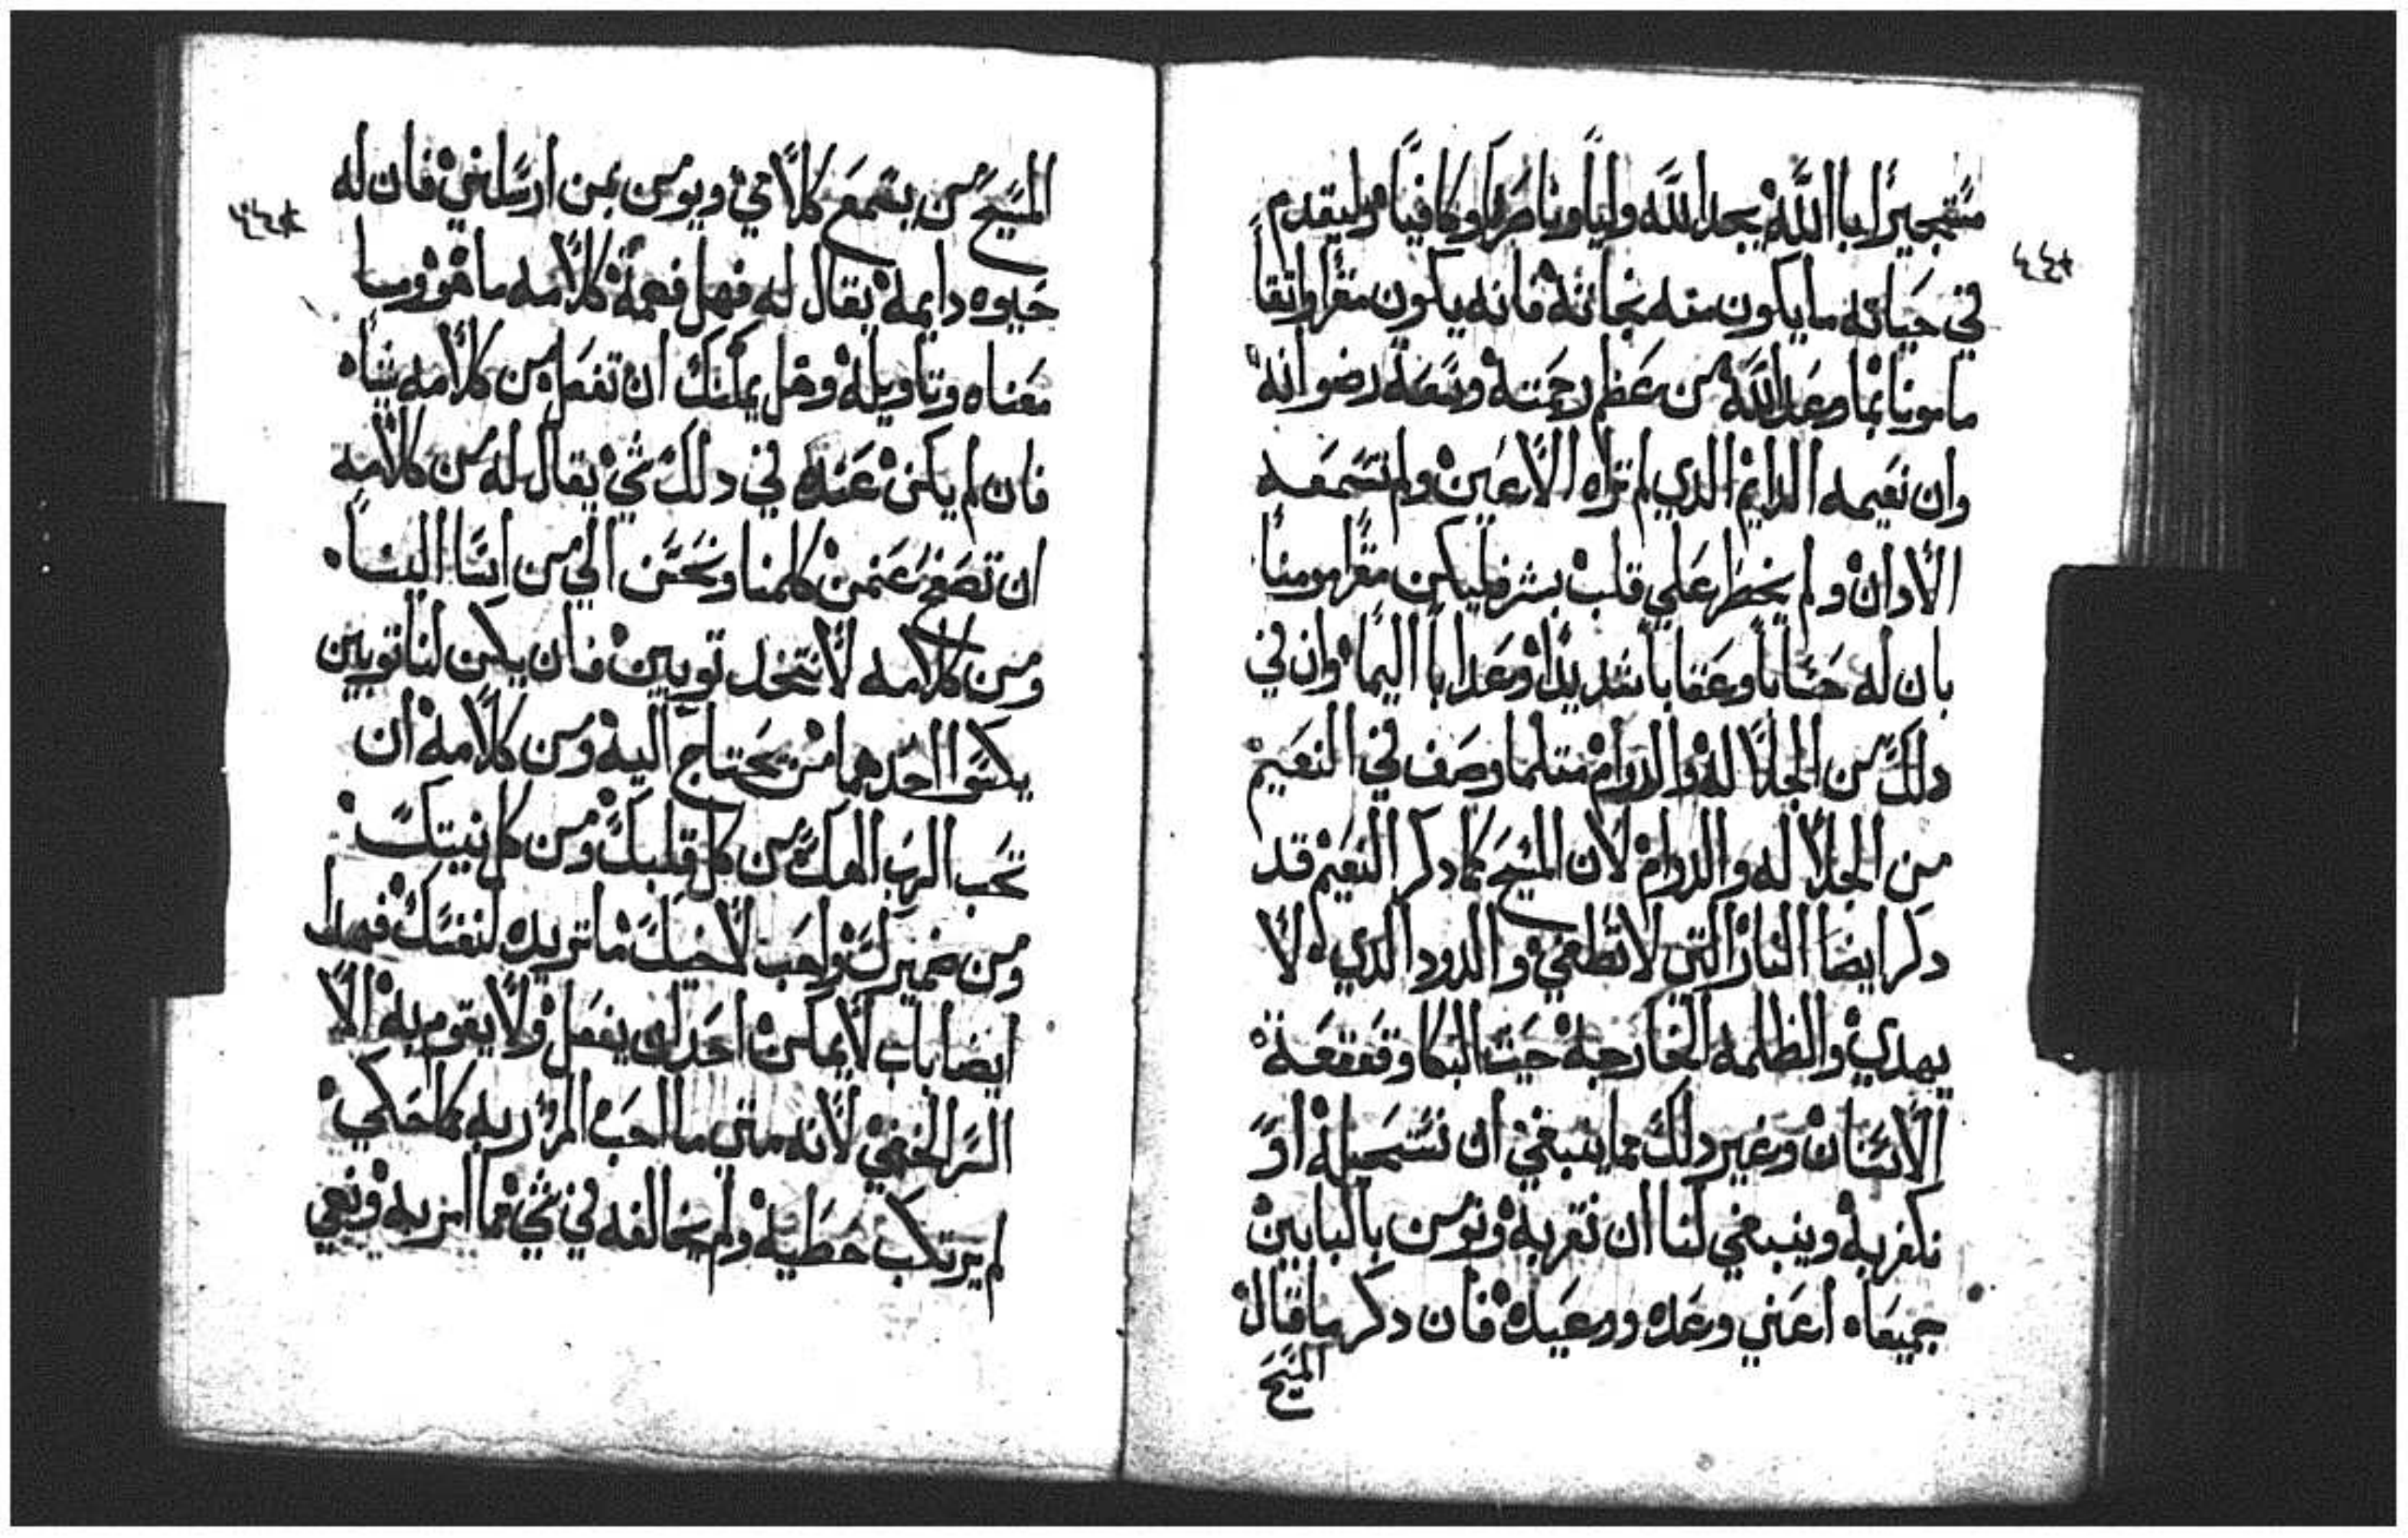 مستجيرا باالله يجد الله وليا وناصرا وكافيا وليقدم
في حياته ما يكون منه نجاته فانه يكون مقرا واثقا
مامونا بما وعد الله من عظم رحمته وسعة رضوانه
وان نعيمه الدايم الدي لم تراه الاعين ولم تسمعه
الادان ولم يخطر علي قلب بشر فليكن مقرا مومنا
بان له حسابا وعقابا شديدا وعدابا اليما وان في
دلك من الجلالة والدوام متلما وصف في النعيم
من الجلاله والدوام لان المسيح كما دكر النعيم قد
دكر ايضا النار التي لا تطفي والدود الدي لا
يهدي والظلمه الخارجة حيت البكا وقعقعة
الاسنان وغير دلك مما ينبغي ان نستحيله او
نكفر به وينبغي لنا ان نقر به ونومن بالبابين
جميعاه اعني وعده ووعيده فان دكر ما قال
المسيح
المسيح من يسمع كلامي ويومن بمن ارسلني فان له
حيوه دايمة يقال له فهل فهمة كلامه ما هو وما
معناه وتاويله وهل يمكنك ان تفعل من كلامه شياه
فان لم يكن عنده في دلك شي يقال له من كلامه
ان تصفح عنمن كلمنا ونحسن الي من اسا الينا
ومن كلامه لا نتخد توبين فان يكن لنا توبين
يكسوا احدهما من يحتاج اليه ومن كلامه ان
تحب الرب الهك من كل قلبك ومن كل نيتك
ومن ضميرك واحب لاخيك ما تريده لنفسك فهدا
ايضا باب لا يمكن احد ان يفعل ولا يقوم به الا
السر الخفي لانه متي ما احب المرؤ ربه كما حكي
لم يرتكب خطية ولم يخالفه في شي مما امر به ونهي